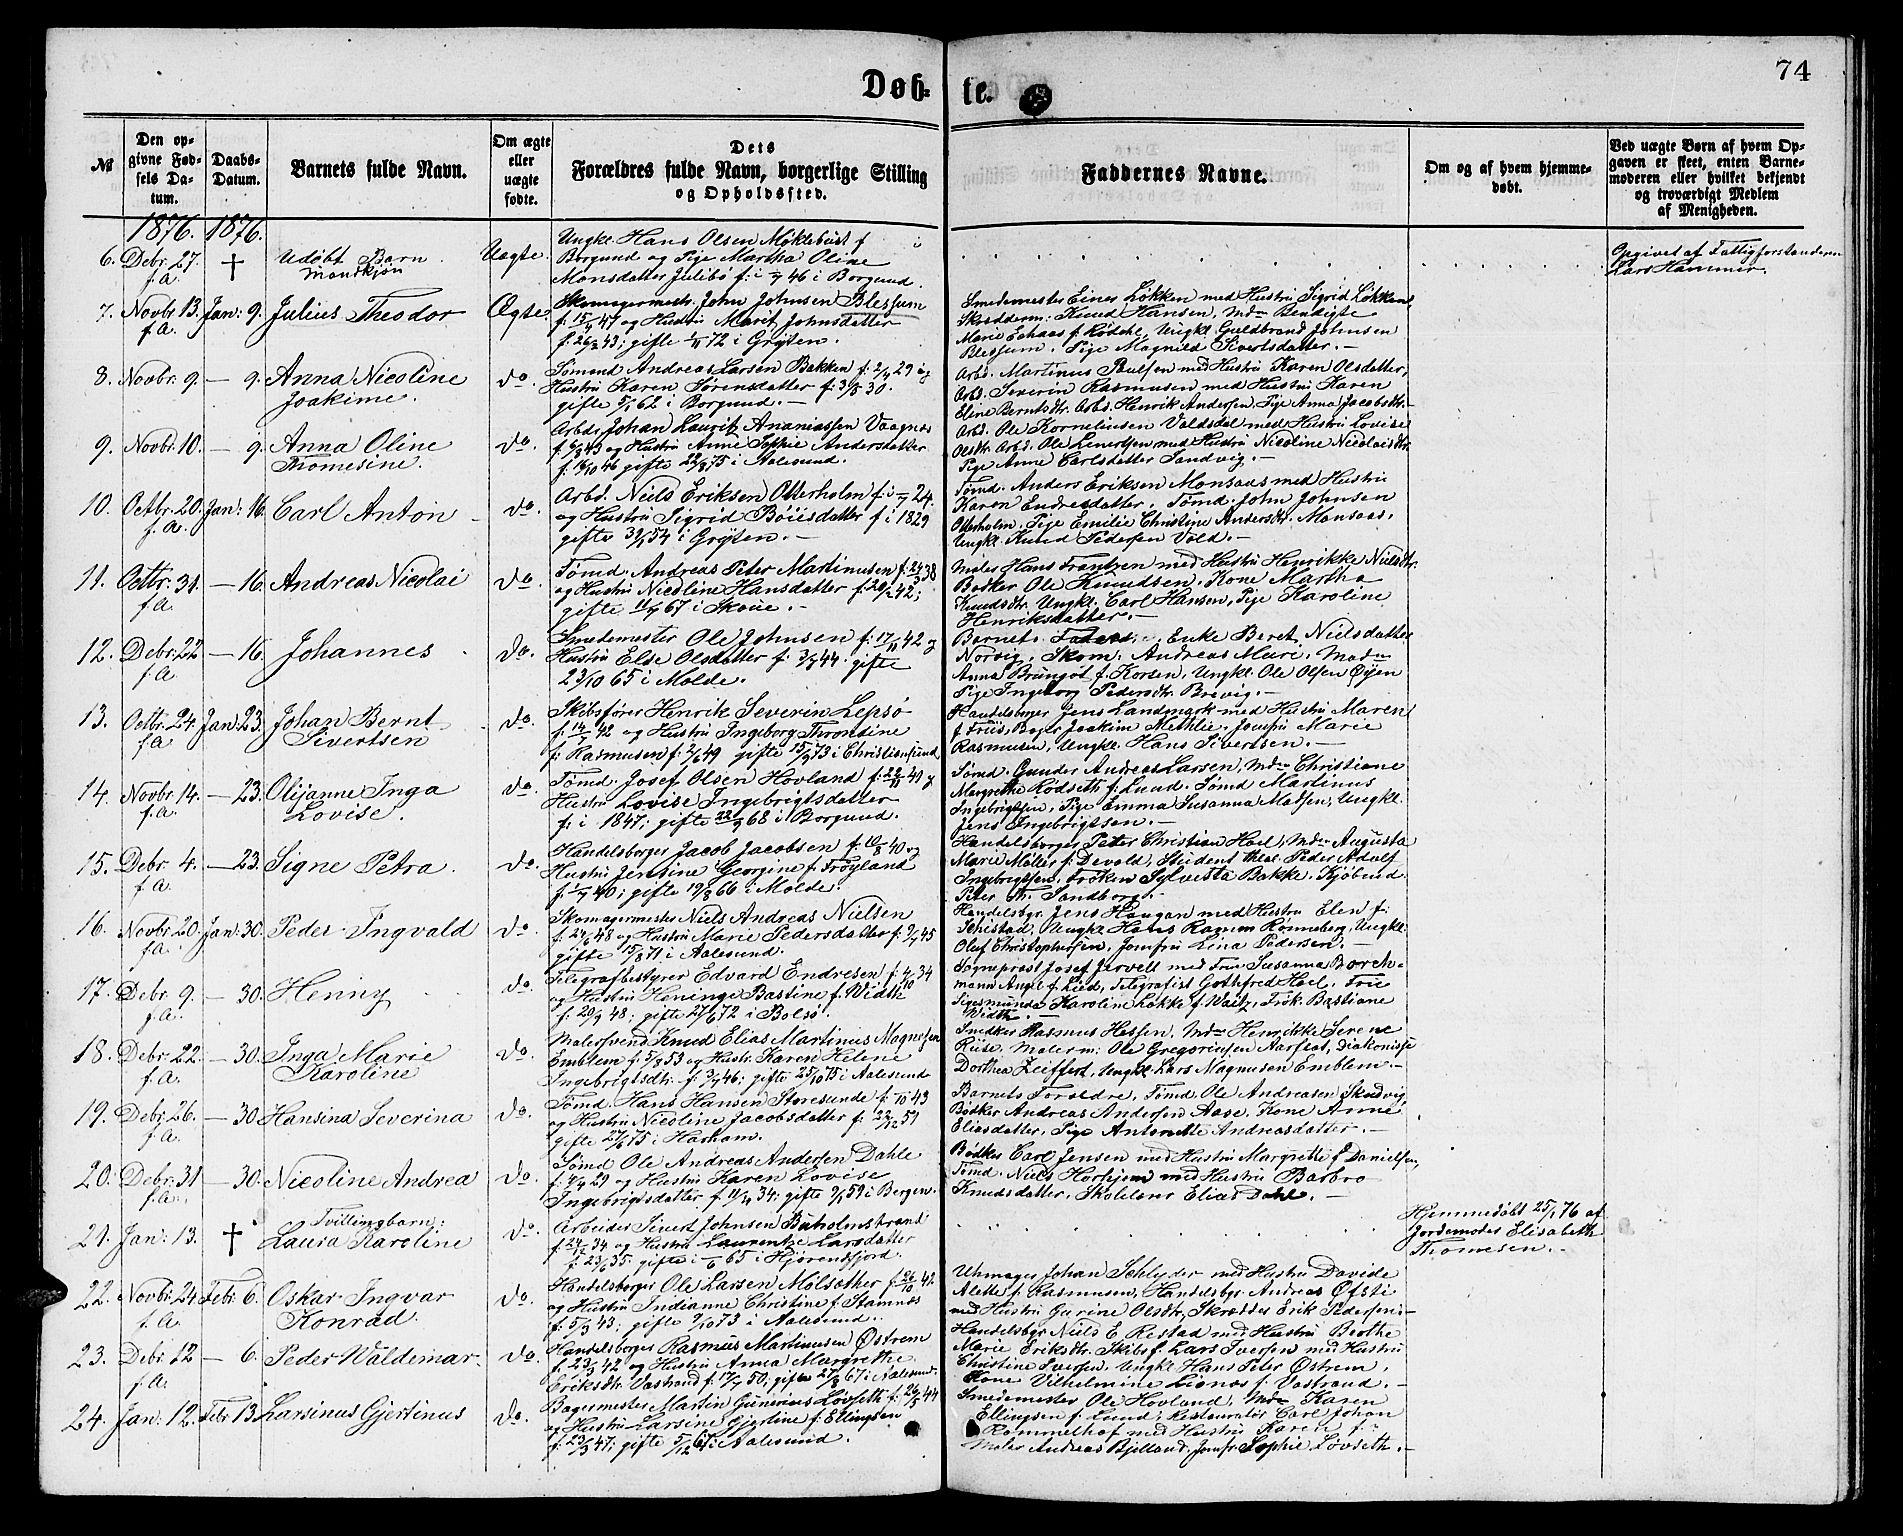 74
Døb-
te.
№
Den op-
givne Fød-
sels Da-
tum.
Daabs-
Datum.
Barnets fulde Navn.
Om ægte
eller
uægte
fødte.
Dets
Forældres fulde Navn, borgerlige Stilling
og Opholdssted.
Faddernes Navne.
Om og af hvem hjemme-
døbt.
Ved uægte Børn af hvem Op-
gaven er skeet, enten Barne-
moderen eller hvilket bekjendt
og troværdigt Medlem
af Menigheden.
1876. 1876.
6. Debr. 27. f.A. † Udøbt Barn Mandkjøn Uægte.
Ungkl. Hans Olsen Møklebust f
Borgund og Pige Martha Oline
Monsdatter Julibø f: i 46 i Borgund.
Opgivet af Fattigforstanderen
Lars Hammer.
7. Novbr 13. f.A. Jan: 9. Julius Theodor Ægte
Skomagermestr. John Johnsen Blessum
f. 15/4 47 og Hustru Marit Johnsdatter
f. 26/2 43; gifte 72 i Grÿten.
Smedemester Einer Løkken med Hustru Sigrid Løkken
Skrædderm: Knud Hansen, Mdm Bendigte
Marie Echaas f. Rødahl, Ungkl. Guldbrand Johnsen
Blessum. Pige Magnild Sivertsdatter.
8. Novbr. 9. — 9. Anna Nicoline Joakime. do.
Tømand Andreas Larsen Bakken f: 2/4 29 og
Hustru Karen Sørensdatter f: 3/8 30.
gifte 5/1 62 i Borgund.
Arbd. Martinus Paulsen med Hustru Karen Olsdatter,
Arbd. Severin Rasmusen med Hustru Karen
Eline Berntsdtr. Arbd. Henrik Andersen, Pige Anna Jacobsdtr.
9. Novbr. 10. — 9. Anna Oline Thomesine. do.
Arbdr. Johan Laurits Ananiassen Vaagnes
f. 6/8 43 og Hustru Anne Sophie Andersdatter
f. 16/10 46 gifte 29/8 75 i Aalesund.
Arbd. Ole Korneliusen Valdsdal med Hustru Lovise
Olsdtr. Arbd. Ole Lenertsen med Hustru Nicoline Nicolaisdtr.
Pige Anne Carlsdatter Sandvig.
10. Octbr. 20. f.A. Jan: 16. Carl Anton do.
Arbd. Niels Eriksen Otterholm f: i 24.
og Hustru Sigrid Bøiisdatter f i 1829
gifte 54 i Grÿten.
Tømd. Anders Eriksen Monsaas med Hustru
Karen Endresdatter, Tømd. John Johnsen
Otterholm. Pige Emilie Christine Andersdtr. Monsaas,
Ungkl. Knud Pedersen Vold.
11. Octbr. 31. f.A. — 16. Andreas Nicolai do.
Tømd. Andreas Peter Martinusen f. 24/3 38
og Hustru Nicoline Hansdatter f. 20/2 42;
gifte 67 i Skoue.
Maler Hans Frantzen med Hustru Henrikke Nielsdtr.
Bødker Ole Knudsen. Kone Martha
Knudsdtr. Ungkl. Carl Hansen, Pige Karoline
Henriksdatter.
12. Debr. 22. f.A. — 16. Johannes do.
Smedemester Ole Johnsen f. 17/11 42 og
Hustru Else Olsdatter f: 3/7 44. gifte
23/10 65 i Molde.
Barnets Fader, Enke Beret Nielsdatter
Norvig. Skom: Andreas Muri, Madm
Anna Brungot f. Korsen, Ungkl. Ole Olsen Øÿen
Pige Ingeborg Pedersdtr. Brevig.
13. Octbr. 24. f.A. Jan: 23. Johan Bernt Sivertsen do.
Skibsfører Henrik Severin Lepsø
f: 14/7 42 og Hustru Ingeborg Throndine
f. Rasmusen f. 2/6 49 gifte 73 i Christiansund
Handelsborger Jens Landmark med Hustru Maren
f. Friis, Bager Joakim Methlie, Jomfru Marie
Rasmusen, Ungkl. Hans Sivertsen.
14. Novbr. 14. f.A. — 23. Olijanne Inga Lovise. do.
Tømd. Josef Olsen Hovland f: 22/11 40 og
Hustru Lovise Ingebrigtsdatter
f: i 1847; gifte 22/9 68 i Borgund.
Tømd. Gunder Andreas Larsen, Mdm Christiane
Margrethe Rødseth f: Lund. Tømd Martinus
Ingebrigtsen, Pige Emma Susanna Madsen, Ungkl.
Jens Ingebrigtsen.
15. Debr. 4. f.A. — 23. Signe Petra. do.
Handelsborger Jacob Jacobsen f. 10/8 40 og
Hustru Jensine Georgine f. Frøÿland
f. 40; gifte 19/8 66 i Molde.
Handelsborger Peter Christian Hoel, Mdm Augusta
Marie Møller f. Devold, Student theol. Peder Adolf
Ingebrigtsen, Frøken Sylvesta Bakke. Kjøbmd.
Peter Th. Sandborg.
16. Novbr. 20. f.A. Jan: 30. Peder Ingvald do.
Skomagermester Niels Andreas Nielsen
f. 24/6 48 og Hustru Marie Pedersdatter f: 9/4 45
gifte 15/8 71 i Aalesund.
Handelsbgr. Jens Haugan med Hustru Elen f:
Schistad, Ungkl. Hans Ragnm Rønneberg, Ungkl.
Oluf Christophersen, Jomfru Lina Pedersen.
17. Debr. 9. f.A. — 30. Henny do.
Telegrafbestyrer Edvard Endresen f. 4/10 34
og Hustru Heninge Bastine f. Width
f. 20/9 48; gifte 27/6 72 i Bolsø.
Sogneprest Josef Jervell med Frue Susanna Borch-
mann Angel f. Lied, Telegrafist Gothfred Hoel, Frue
Sigesmunda Karoline Løkke f. Waitz, Frøk. Bastiane
Width.
18. Debr. 22. f.A. — 30. Inga Marie Karoline do.
Malersvend Knud Elias Martinus Magnesen
Emblem f. 5/9 53 og Hustr. Karen Helene
Ingebrigtsdtr. f. 3/7 46; gifte 25/10 75 i Aalesund
Snedker Rasmus Hessen, Mdm Henrikke Serene
Riise, Malerm: Ole Gregoriusen Aarflot, Diakonisse
Dorthea Zeiffert, Ungkl. Lars Magnusen Emblem.
19. Debr. 26. f.A. — 30. Hansina Severina do.
Tømd. Hans Hansen Storesunde f. 43
og Hustru Nicoline Jacobsdatter f. 22/12 51
gifte 27/6 75 i Harham.
Barnets Forældre, Tømd. Ole Andreasen Skudvig,
Bødker Andreas Andersen Aase, Kone Anne
Eliasdatter, Pige Antonette Andreasdatter.
20. Debr. 31 f.A. — 30. Nicoline Andrea do.
Tømd Ole Andreas Andersen Dahle
f. 9/4 29 og Hustru Karen Lovise
Ingebrigtsdatter f. 11/4 34; gifte 59 i Bergen.
Bødker Carl Jensen med Hustru Margrethe f. Danielsen,
Tømd. Niels Horhjem med Hustru Barbro
Knudsdatter, Skolelærer Elias Dahl.
21. Jan: 13. † Tvillingbarn: Laura Karoline do.
Arbeider Sivert Johnsen Buholmstrand
f. 24/12 34 og Hustru Laurentze Larsdatter
f: 23/6 35. gifte i 65 i Hjørendfjord.
Hjemmedøbt 25/1 76 af
Jordemoder Elisabeth
Thomesen.
22. Novbr. 24. f.A. Febr. 6. Oskar Ingvar Konrad. do.
Handelsborger Ole Larsen Molsæther f. 26/10 42
og Hustru Indianne Christine f. Stamnæs
f. 5/3 43; gifte 9/10 73 i Aalesund.
Uhrmager Johan Schlyder med Hustru Davide
Alette f. Rasmusen, Handelsbgr. Andreas Øfsti
med Hustru Gurine Olsdtr, Skrædder Erik Pedersen
23. Debr. 12 f.A. — 6. Peder Waldemar. do.
Handelsborger Rasmus Martinusen Østrem
f. 23/3 42 og Hustru Anna Margrethe
Eriksdtr. Vastrand f. 17/7 50; gifte 27/8 67 i Aalesund.
Handelsbgr Niels E. Restad med Hustru Berthe
Marie Eriksdtr. Skibsf. Lars Iversen med Hustru
Christine Iversen, Ungkl. Hans Peter Østrem,
Kone Vilhelmine Lionæs f. Vastrand.
24. Jan: 12. Febr. 13. Larsinus Gjertinus do.
Bagermester Martin Gunerius Løvseth f: 26/5 44
og Hustru Larsine Gjertine f. Ellingsen
f. 23/3 47; gifte 5/12 67 i Aalesund.
Smedemester Ole Hovland, Mdm Karen
Ellingsen f. Lund; Restauratør Carl Johan
Rommelhof med Hustru Karen f:
Maler Andreas Bjelland. Jomfr. Sophie Løvseth.